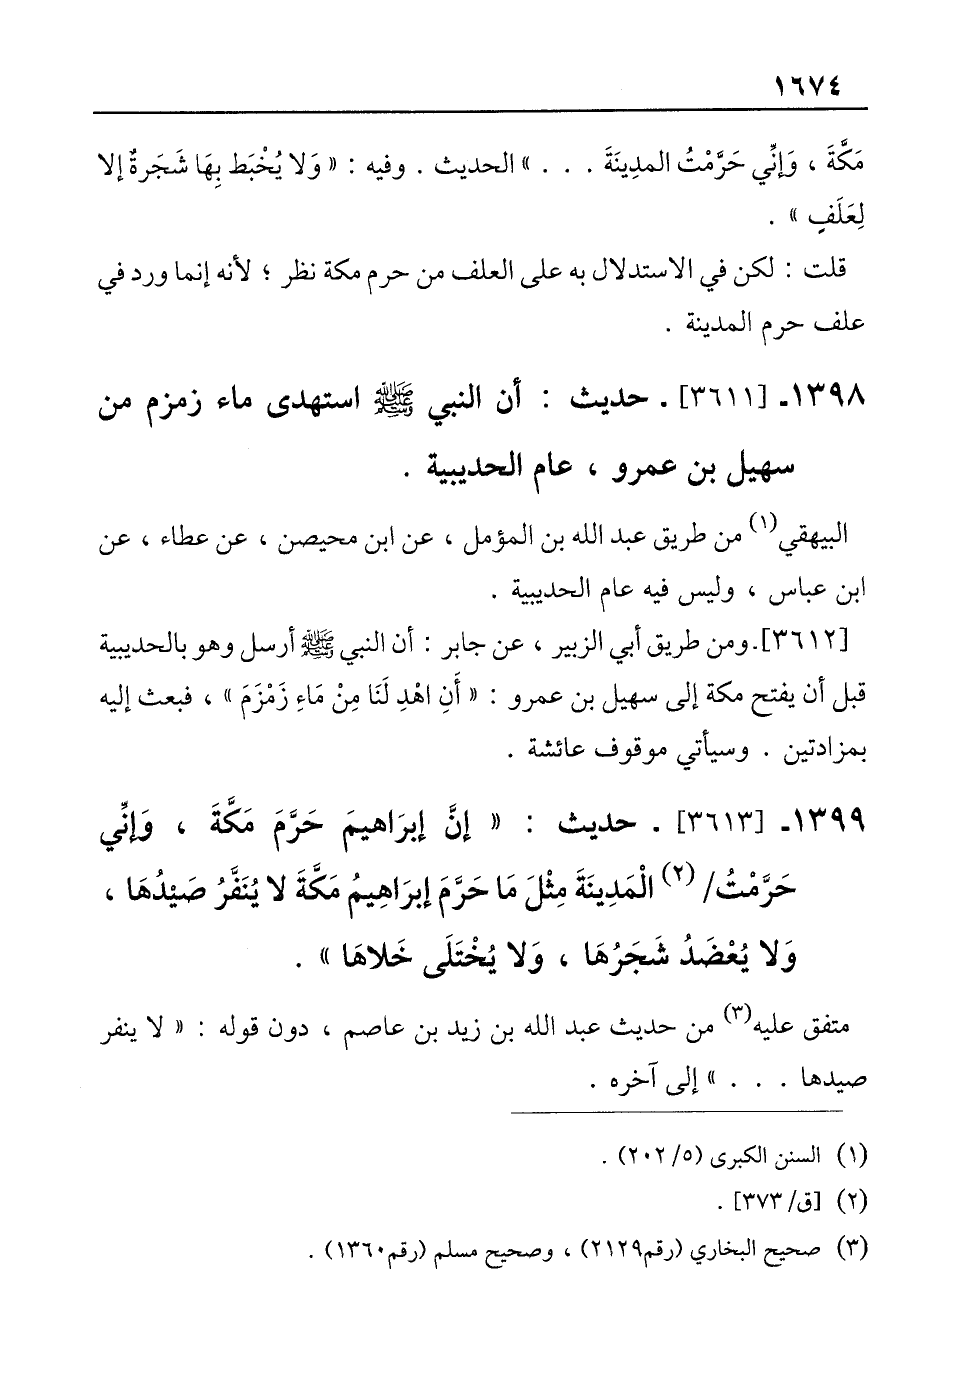 ١٦٧٤
مَكَّةَ ، وَإِنِّي حَرَّمْتُ المدِينَةَ . . . » الحديث . وفيه : « وَلا يُخْبَط بِهَا شَجَرةٌ إلا
لِعَلَفٍ » .
قلت : لكن في الاستدلال به على العلف من حرم مكة نظر ؛ لأنه إنما ورد في
علف حرم المدينة .
١٣٩٨ـ [٣٦١١] . حديث : أن النبي ﷺ استهدى ماء زمزم من
سهيل بن عمرو ، عام الحديبية .
البيهقي(١) من طريق عبد الله بن المؤمل ، عن ابن محيصن ، عن عطاء ، عن
ابن عباس ، وليس فيه عام الحديبية .
[٣٦١٢].ومن طريق أبي الزبير ، عن جابر : أن النبي ﷺ أرسل وهو بالحديبية
قبل أن يفتح مكة إلى سهيل بن عمرو : « أَنِ اهْدِ لَنَا مِنْ مَاءِ زَمْزَمَ » ، فبعث إليه
بمزادتين . وسيأتي موقوف عائشة .
١٣٩٩ـ [٣٦١٣] . حديث : « إنَّ إبرَاهيمَ حَرَّمَ مَكَّةَ ، وَإنِّي
حَرَّمْتُ/(٢) الْمَدِينَةَ مِثْلَ مَا حَرَّمَ إبرَاهِيمُ مَكَّةَ لا يُنَفَّرُ صَيْدُهَا ،
وَلا يُعْضَدُ شَجَرُهَا ، وَلا يُخْتَلَى خَلاهَا » .
متفق عليه(٣) من حديث عبد الله بن زيد بن عاصم ، دون قوله : « لا ينفر
صيدها . . . » إلى آخره .
(١) السنن الكبرى (٥/ ٢٠٢) .
(٢) [ق/ ٣٧٣] .
(٣) صحيح البخاري (رقم٢١٢٩) ، وصحيح مسلم (رقم١٣٦٠) .